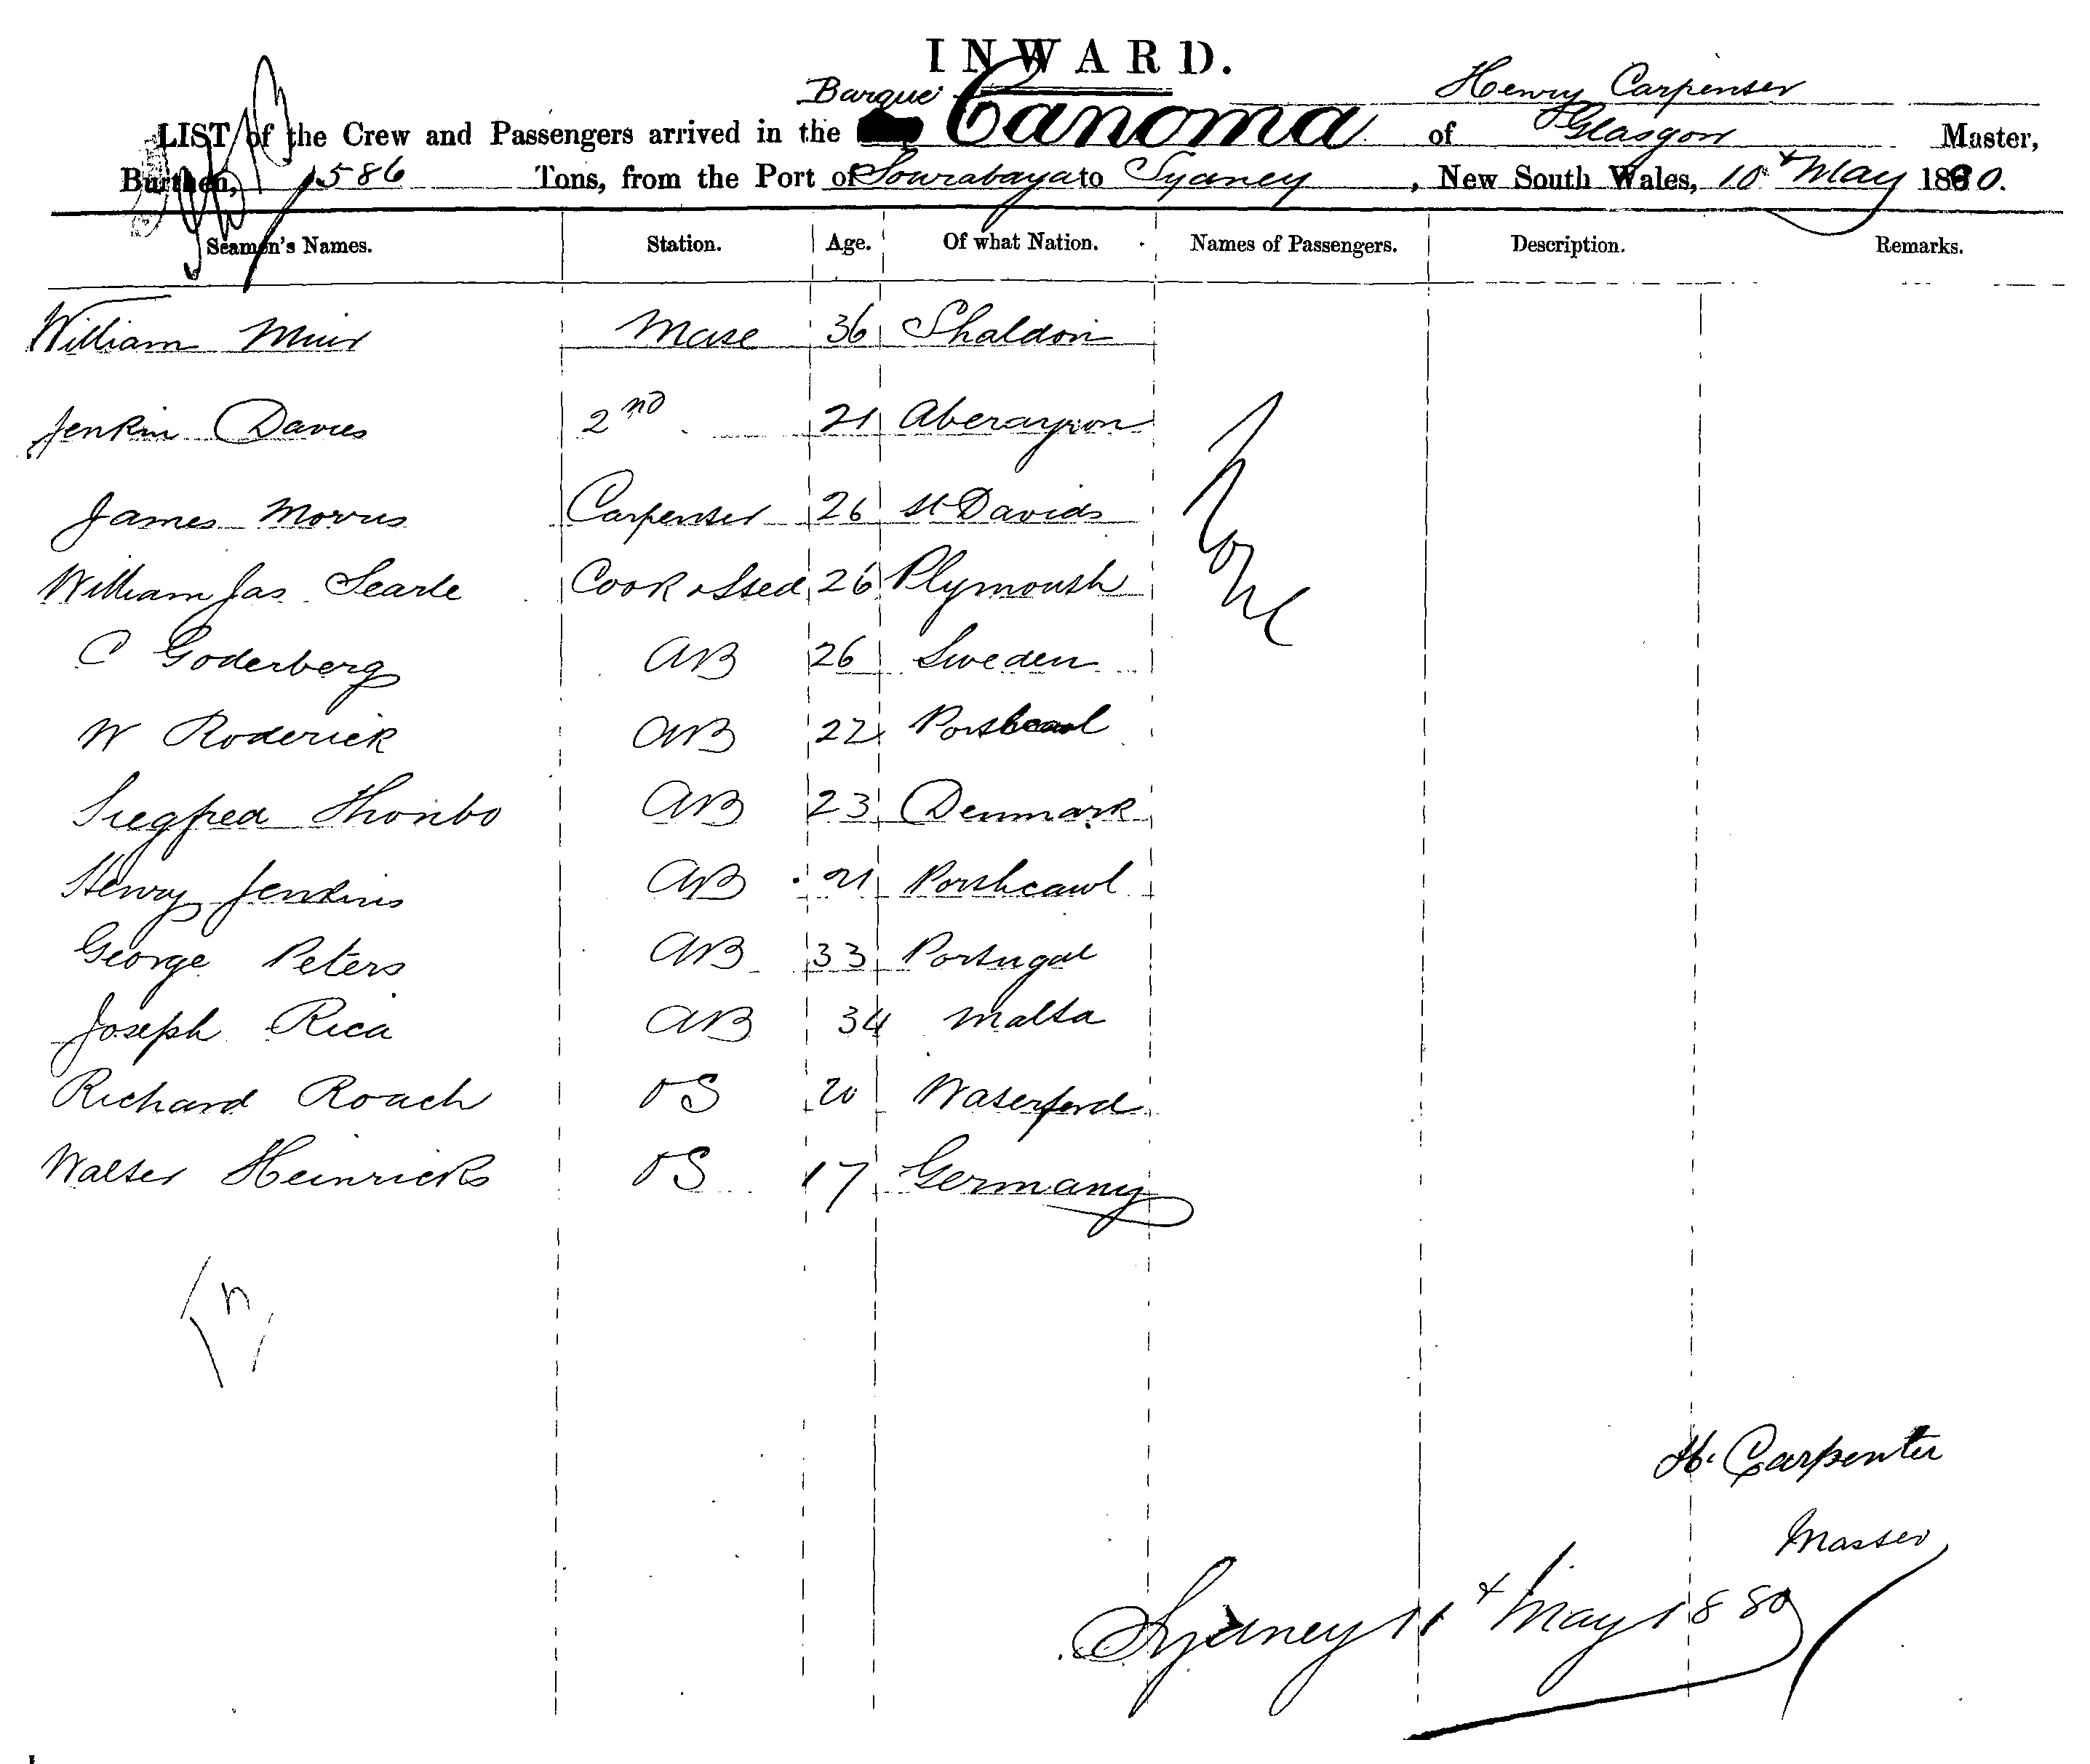 INWARD.
Barque Henry Carpenter
LIST of the Crew and Passengers arrived in the Canoma of Glasgow Master,
Burthen, 586 Tons, from the Port of Sourabaya to Sydney, New South Wales, 10th May 1880.
Seamen's Names. Station. Age. Of what Nation. Names of Passengers. Description. Remarks.
William Muir Mate 36 Shaldon
Jenkin Davies 2nd 21 Aberayron
James Morris Carpenter 26 St Davids
William Jas Searle Cook & Sted 26 Plymouth
C Goderberg AB 26 Sweden
W Roderick AB 22 Porthcawl
Siegfred Thoribo AB 23 Denmark
Henry Jenkins AB 21 Porthcawl
George Peters AB 33 Portugal
Joseph Rica AB 34 Malta
Richard Roach OS 20 Waterford
Walter Heinricks OS 17 Germany
None
H. Carpenter
Master
Sydney 11th May 1880